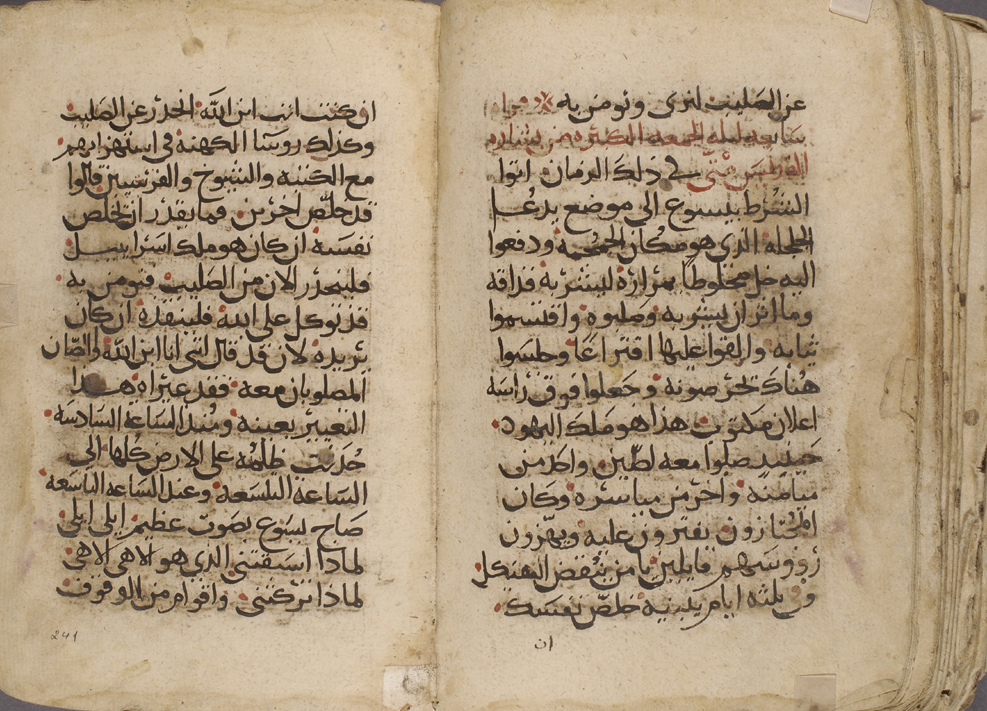 عن الصليب لنرى ونومن به
سابعه ليله الجمعه الكبيره من بشاره
القديس متى في ذلك الزمان اتوا
الشرط بيسوع الى موضع يدعا
الجلجله الذي هو مكان الجمجمه ودفعوا
اليه خل مخلوطا بمرارة ليشربه فذاقه
وما اثر ان يشربه وصلبوه واقتسموا
ثيابه والقوا عليها اقتراعا وجلسوا
هناك تحرصونه وجعلوا فوق راسه
اعلان مكتوب هذا هو ملك اليهود
حينيذ صلبوا معه لصين واحد من
ميامنه واخر من مياسره وكان
المجتازون يفترون عليه ويهزون
رووسهم قايلين يا من ينقض الهيكل
وفي ثلثه ايام يبنيه خلص نفسك
ان
ان كنت انت ابن الله انحدر عن الصليب
وكذلك روسا الكهنة في استهزايهم
مع الكتبه والشيوخ والفريسيين قالوا
قد خلص اخرين فما يقدر ان يخلص
نفسه ان كان هو ملك اسراييل
فلينحدر الان من الصليب فنومن به
قد توكل على الله فلينقذه ان كان
يريده لانه قد قال انني انا ابن الله واللصان
المصلوبان معه فقد عيراه هذا
التعيير بعينه ومنذ الساعه السادسه
حدثت ظلمه على الارض كلها الى
الساعه التاسعه وعند الساعه التاسعه
صاح يسوع بصوت عظيم ايلي ايلي
لماذا اسبقتني الذي هو الاهي الاهي
لماذا تركتني واقوام من الوقوف
241